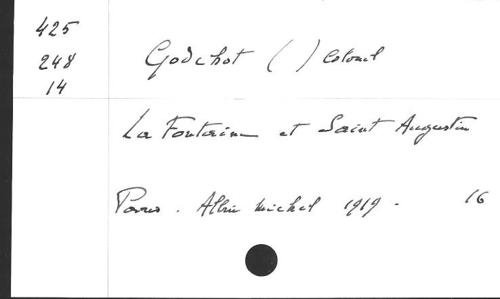 425
248
14
Godchot ( ) Colonel
La Fontaine et Saint Augustin
Paris. Albin Michel 1919. 16